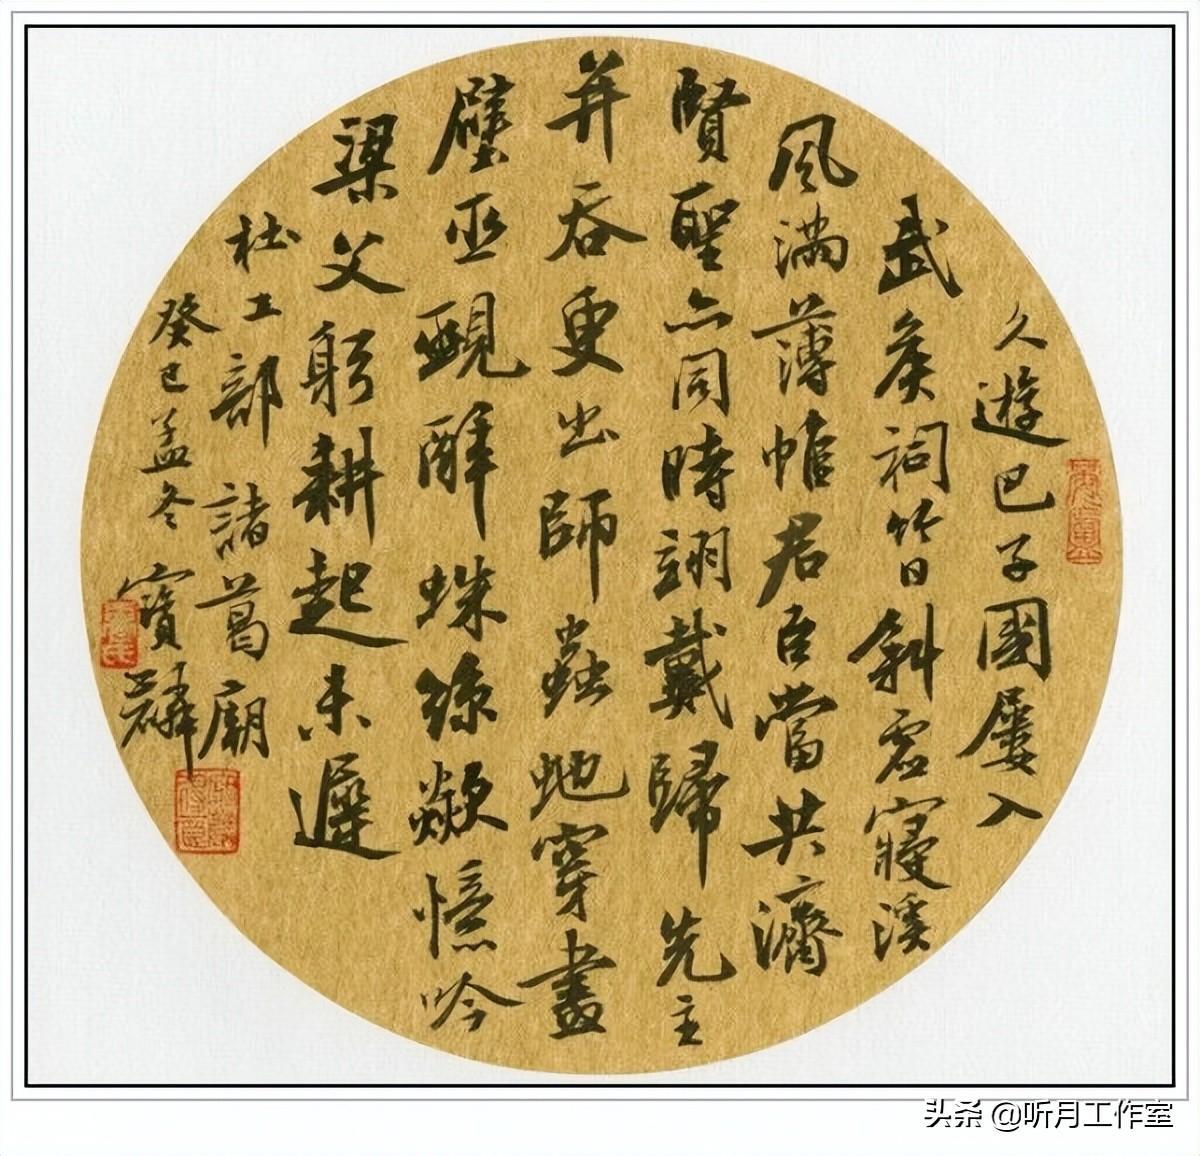 久遊巴子國屢入
武矦祠竹日斜虛寢溪
風滿薄帷君臣當共濟
賢聖亦同時翊戴歸先主
并吞更出師蟲虵穿畫
壁巫覡醉蛛絲歘憶吟
梁父躬耕起未遲
杜工部諸葛廟
癸巳孟冬寶麟
头条 @听月工作室